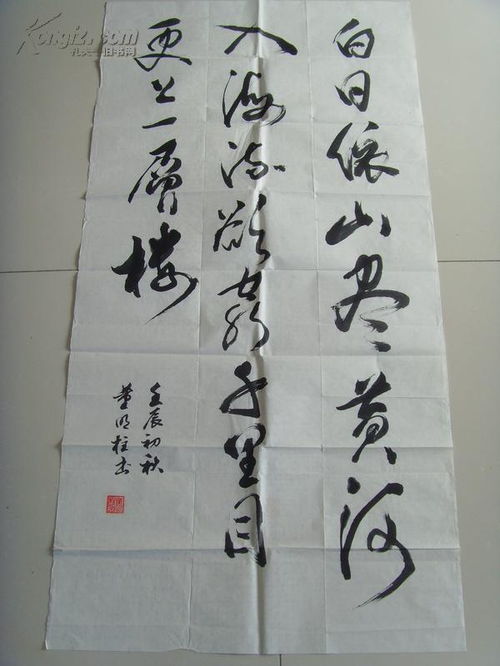 白日依山尽黄河
入海流欲穷千里目
更上一層楼
壬辰初秋
董明柱书
Kongfz.com
孔夫子旧书网